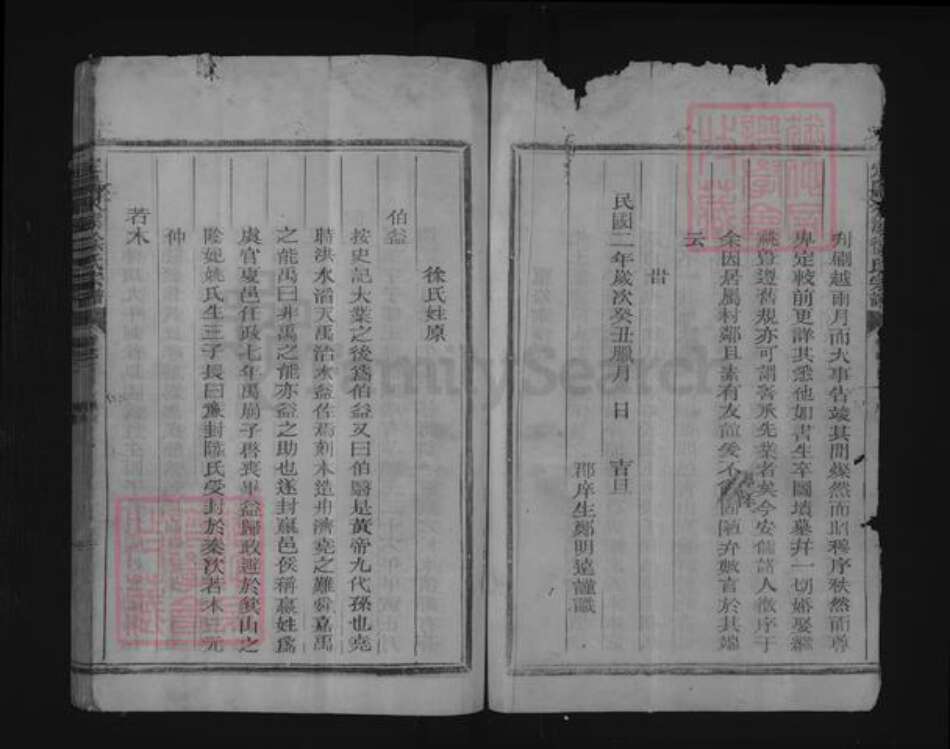 刑剞越兩月而大事告竣其間燦然而昭穆序秩然而尊
卑定較前更詳其悉他如書生卒圖墳墓并一切婚娶繼
祧遵舊規亦可謂善承先業者矣今安儒諸人徵序于
余因居屬村鄰且素有友誼爰不固陋弁數言於其端
云
旹
民國二年歲次癸丑臘月 日 吉旦
郡庠生鄭明遠謹識
徐氏姓原
伯益
按史記大業之後爲伯益又曰伯翳是黃帝九代孫也堯
時洪水滔天禹治水益佐焉刻木造舟濟堯之難舜嘉禹
之能禹曰非禹之能亦益之助也遂封嬴邑侯稱嬴姓爲
虞官夏邑任政七年禹崩子啓喪畢益歸政避於箕山之
陰妃姚氏生三子長曰廉封陸氏受封於秦次若木三元
仲
若木
FamilySearch